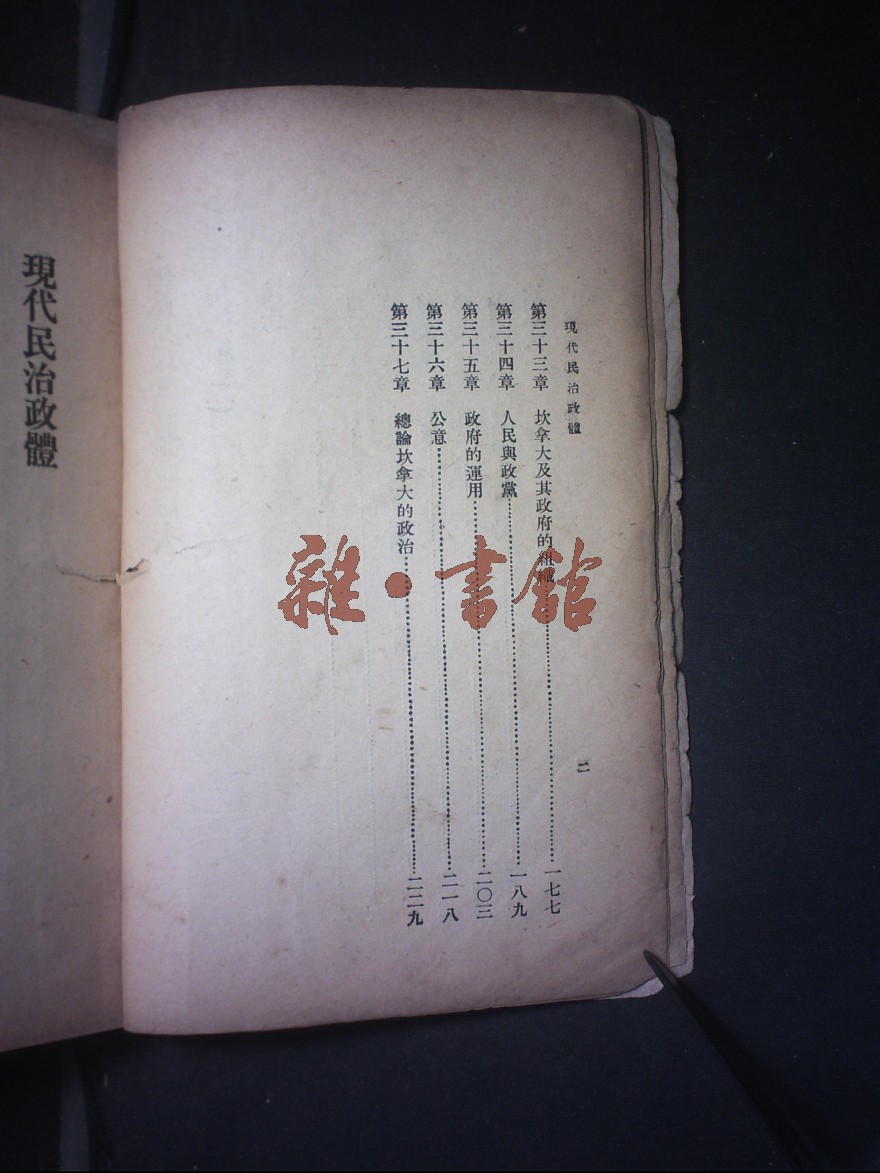 現代民治政體
第三十三章 坎拿大及其政府的組織 一七七
第三十四章 人民與政黨 一八九
第三十五章 政府的運用 二〇三
第三十六章 公意 二一八
第三十七章 總論坎拿大的政治 二二九
二
現代民治政體
雜·書館